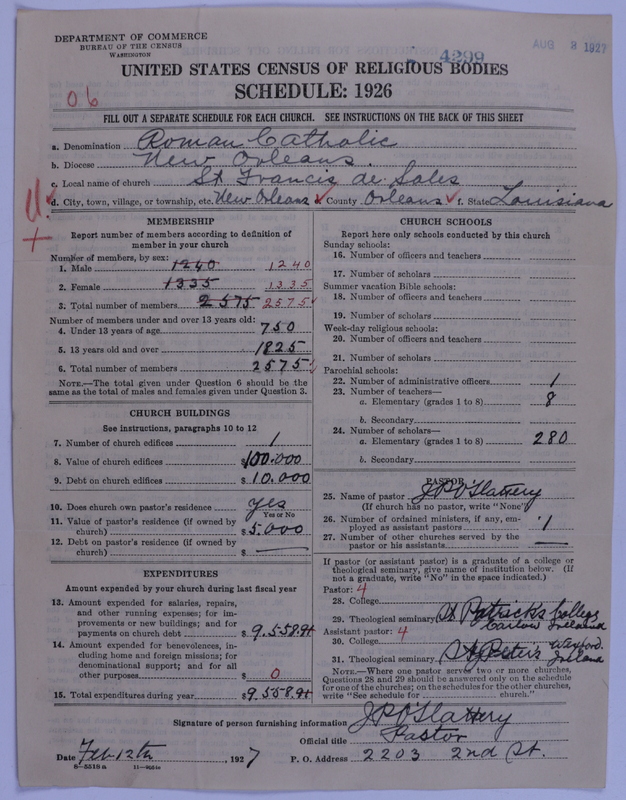 DEPARTMENT OF COMMERCE
BUREAU OF THE CENSUS
WASHINGTON
4299
AUG 2 1927
UNITED STATES CENSUS OF RELIGIOUS BODIES
SCHEDULE: 1926
06
FILL OUT A SEPARATE SCHEDULE FOR EACH CHURCH. SEE INSTRUCTIONS ON THE BACK OF THIS SHEET
a. Denomination Roman Catholic
b. Diocese New Orleans.
c. Local name of church St Francis de Sales
d. City, town, village, or township, etc. New Orleans e. County Orleans f. State Louisiana
MEMBERSHIP
Report number of members according to definition of
member in your church
Number of members, by sex:
1. Male 1240 1240
2. Female 1335 1335
3. Total number of members 2575 2575
Number of members under and over 13 years old:
4. Under 13 years of age 750
5. 13 years old and over 1825
6. Total number of members 2575
NOTE.—The total given under Question 6 should be the
same as the total of males and females given under Question 3.
CHURCH BUILDINGS
See instructions, paragraphs 10 to 12
7. Number of church edifices 1
8. Value of church edifices $100.000
9. Debt on church edifices $10.000
10. Does church own pastor's residence yes
Yes or No
11. Value of pastor's residence (if owned by
church) $5.000
12. Debt on pastor's residence (if owned by
church) $
EXPENDITURES
Amount expended by your church during last fiscal year
13. Amount expended for salaries, repairs,
and other running expenses; for im-
provements or new buildings; and for
payments on church debt $9.558.94
14. Amount expended for benevolences, in-
cluding home and foreign missions; for
denominational support; and for all
other purposes $0
15. Total expenditures during year $9.558.94
CHURCH SCHOOLS
Report here only schools conducted by this church
Sunday schools:
16. Number of officers and teachers
17. Number of scholars
Summer vacation Bible schools:
18. Number of officers and teachers
19. Number of scholars
Week-day religious schools:
20. Number of officers and teachers
21. Number of scholars
Parochial schools:
22. Number of administrative officers 1
23. Number of teachers—
a. Elementary (grades 1 to 8) 8
b. Secondary
24. Number of scholars—
a. Elementary (grades 1 to 8) 280
b. Secondary
PASTOR
25. Name of pastor J P O'Slattery
(If church has no pastor, write "None")
26. Number of ordained ministers, if any, em-
ployed as assistant pastors 1
27. Number of other churches served by the
pastor or his assistants
If pastor (or assistant pastor) is a graduate of a college or
theological seminary, give name of institution below. (If
not a graduate, write "No" in the space indicated.)
Pastor: 4
28. College
29. Theological seminary St Patricks College
Carlow Ireland
Assistant pastor: 4
30. College
31. Theological seminary
NOTE.—Where one pastor served two or more churches,
Questions 28 and 29 should be answered only on the schedule
for one of the churches; on the schedules for the other churches,
write "See schedule for church."
Signature of person furnishing information J P O'Slattery
Official title Pastor
Date Feb 12th, 1927 P. O. Address 2203 2nd St.